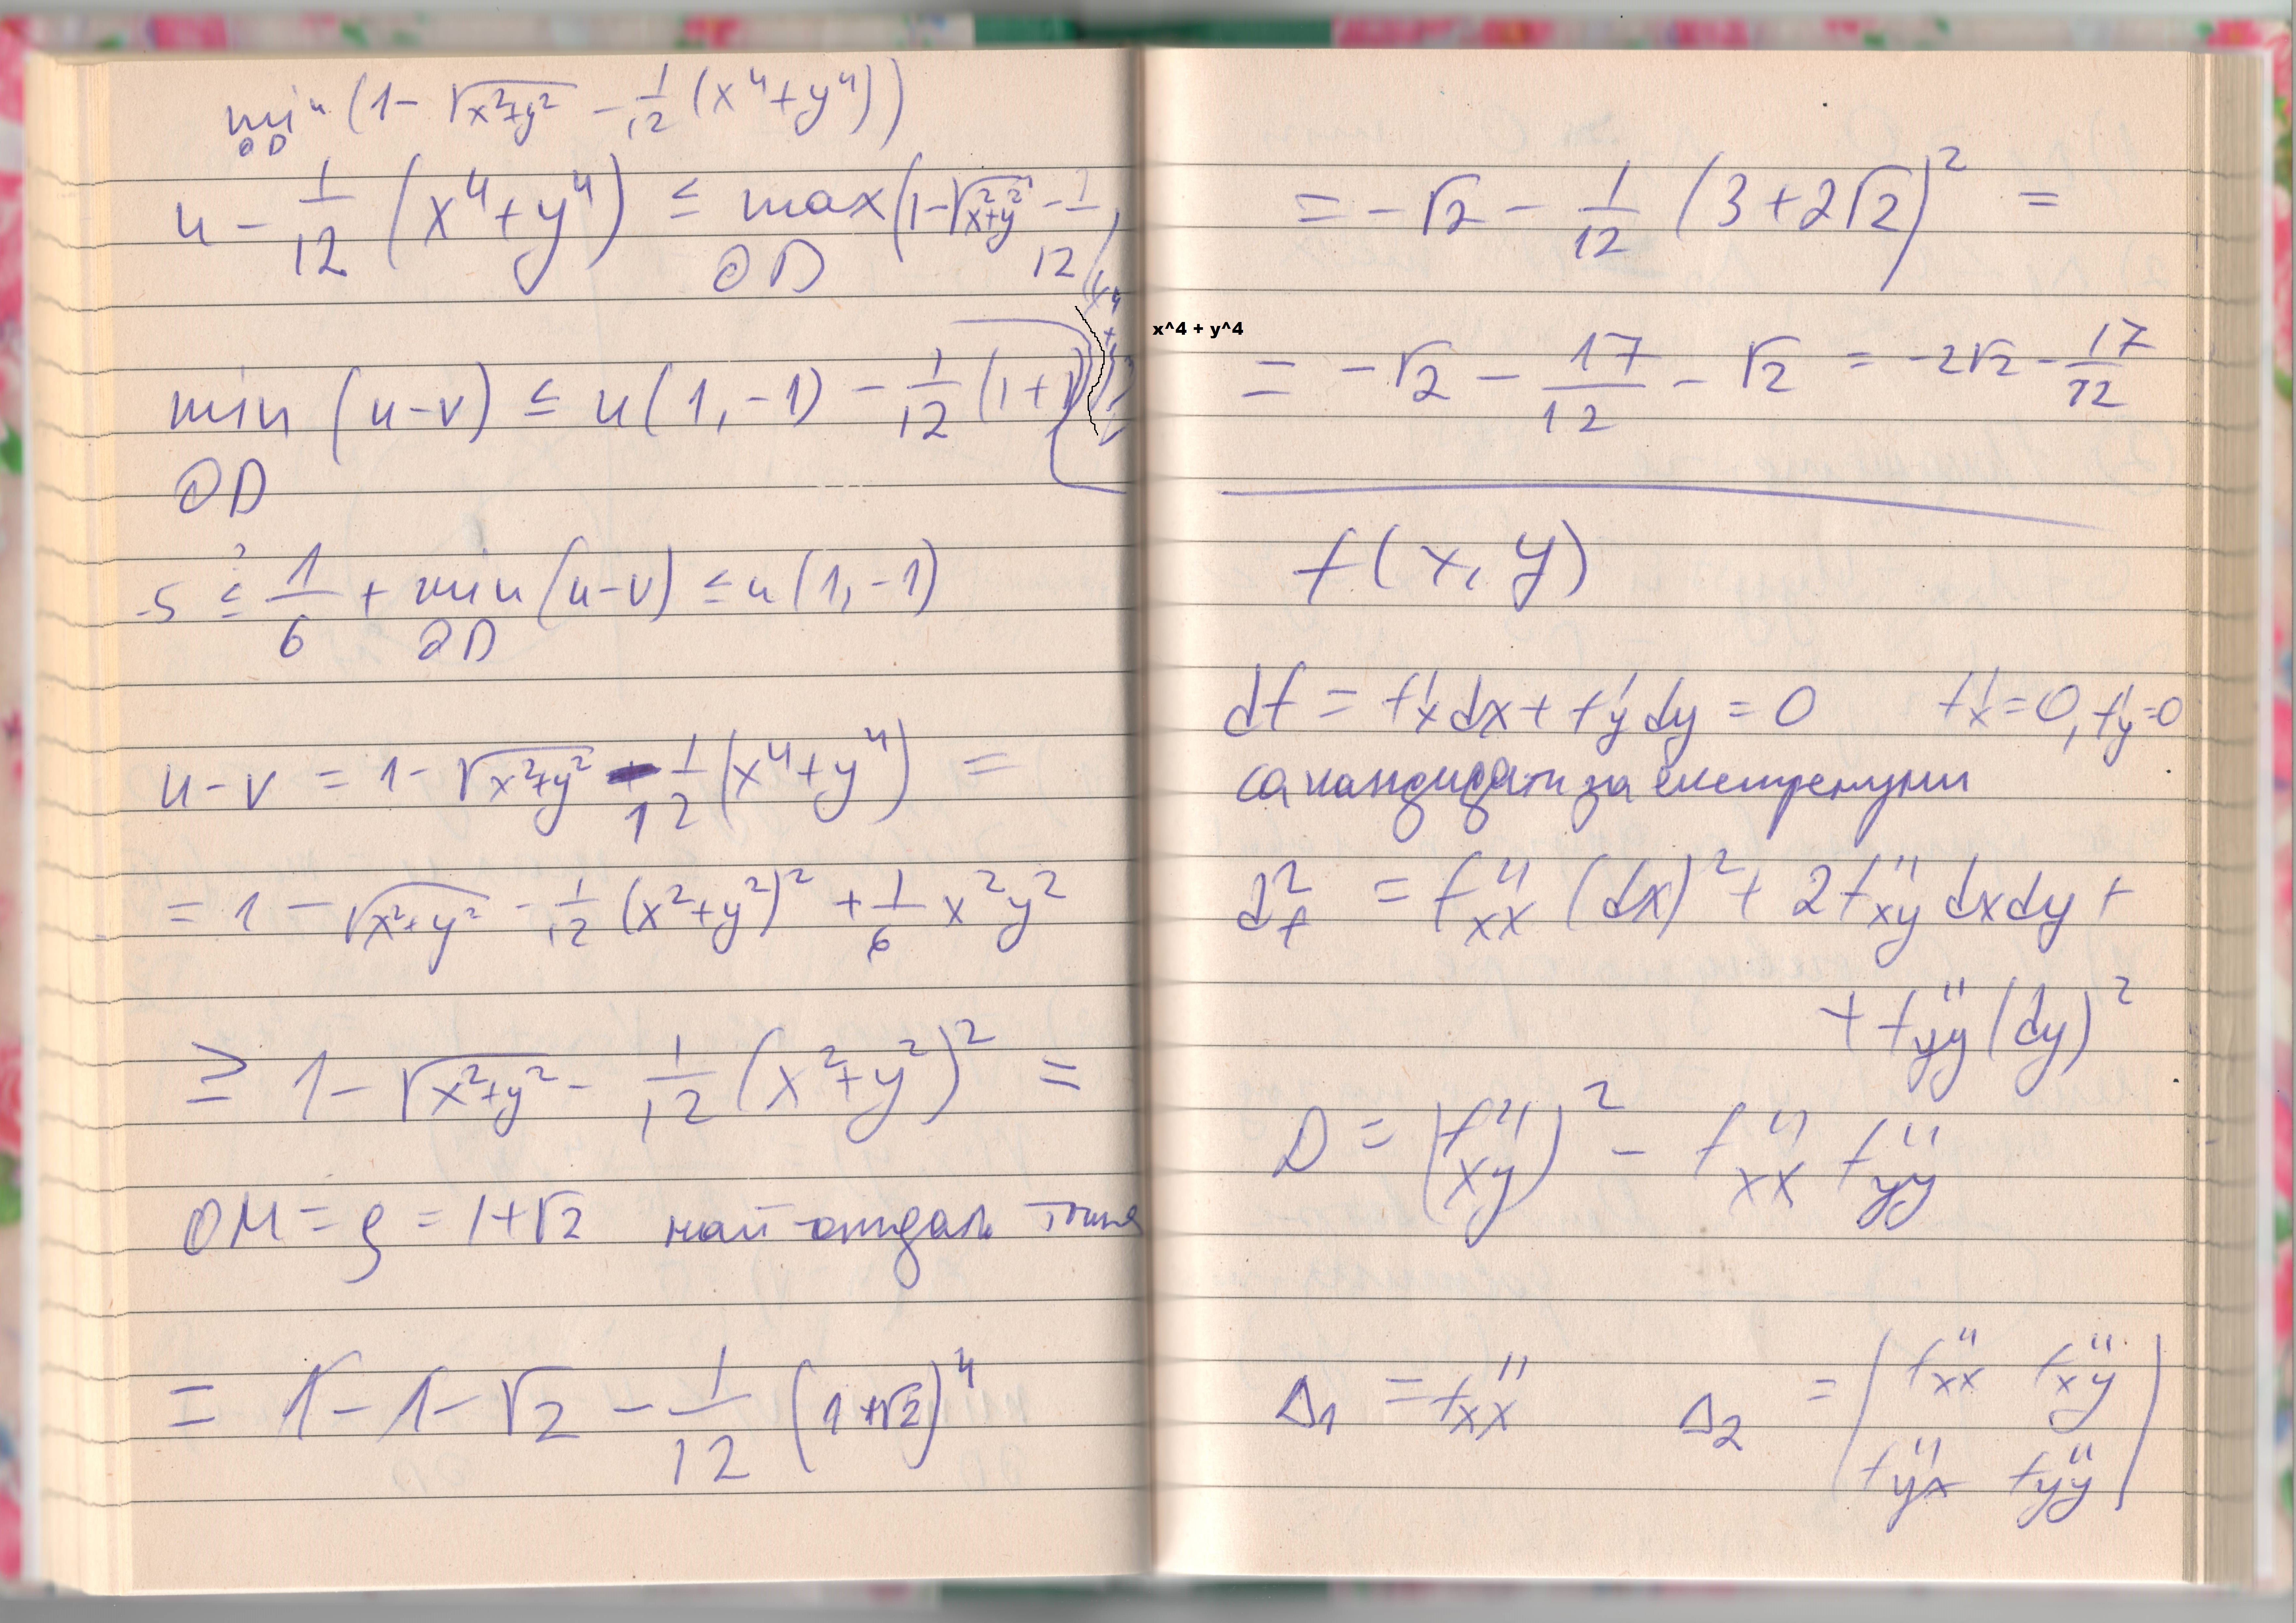 min (1 - √(x²+y²) - 1/12 (x⁴+y⁴))
∂D
u - 1/12 (x⁴+y⁴) ≤ max (1 - √(x²+y²) - 1/12 (x⁴+
∂D
min (u-v) ≤ u(1,-1) - 1/12 (1+1)
∂D
-5 ≤? 1/6 + min (u-v) ≤ u(1,-1)
∂D
u-v = 1 - √(x²+y²) - 1/12 (x⁴+y⁴) =
= 1 - √(x²+y²) - 1/12 (x²+y²)² + 1/6 x²y²
≥ 1 - √(x²+y²) - 1/12 (x²+y²)² =
OM = ρ = 1+√2 най-отдал. точка
= 1 - 1 - √2 - 1/12 (1+√2)⁴
= -√2 - 1/12 (3+2√2)² =
x^4 + y^4
= -√2 - 17/12 - √2 = -2√2 - 17/12
f(x,y)
df = f'x dx + f'y dy = 0 f'x = 0, f'y = 0
са кандидати за екстремуми
d²f = f''xx (dx)² + 2f''xy dxdy +
+ f''yy (dy)²
D = (f''xy)² - f''xx f''yy
Δ1 = f''xx Δ2 = | f''xx f''xy |
| f''yx f''yy |